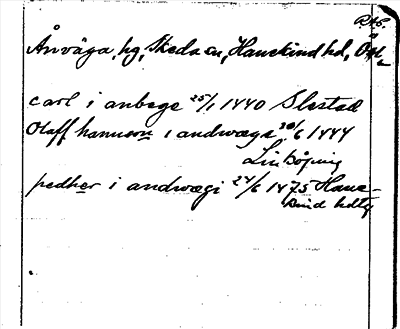 R.A.S.
Ånväga, hg, Skeda sn, Hanekind hd, Ög.
carl i anboge 25/1 1440 Slestad
Olaff hanuson i andwæga 30/6 1444
Linköping
pedher i andwægi 24/6 1475 Hane-
kind hdtg